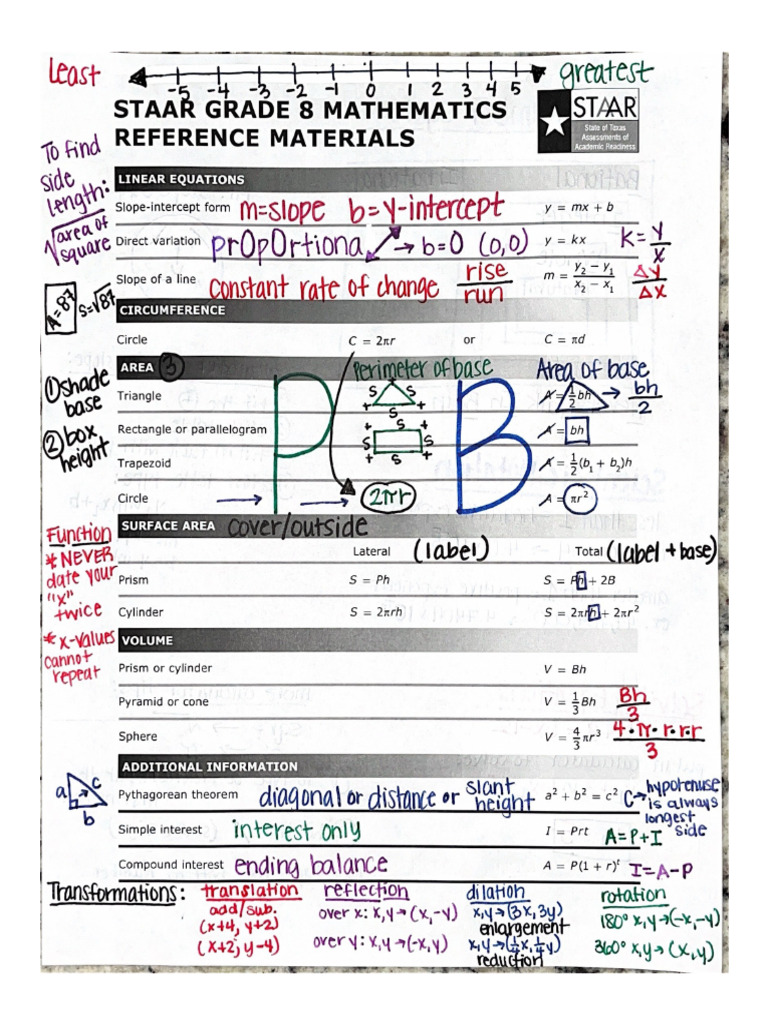 least
-5 -4 -3 -2 -1 0 1 2 3 4 5
greatest
STAAR GRADE 8 MATHEMATICS
REFERENCE MATERIALS
STAAR
State of Texas
Assessments of
Academic Readiness
To find
side
length:
√area of
square
A=87
S=√87
LINEAR EQUATIONS
Slope-intercept form m=slope b=y-intercept y = mx + b
Direct variation prOpOrtional → b=0 (0,0) y = kx K = y/x
Slope of a line constant rate of change rise/run m = (y₂ − y₁)/(x₂ − x₁) Δy/Δx
CIRCUMFERENCE
Circle C = 2πr or C = πd
AREA 3 Perimeter of base Area of base
① shade
base
② box
height
P B
Triangle S S S + + + A = ½bh → bh/2
Rectangle or parallelogram S S S S + + + + A = bh
Trapezoid A = ½(b₁ + b₂)h
Circle → → 2πr A = πr²
SURFACE AREA cover/outside
Lateral (label) Total (label + base)
Prism S = Ph S = Ph + 2B
Cylinder S = 2πrh S = 2πrh + 2πr²
Function
* NEVER
date your
"x"
twice
* x-values
cannot
repeat
VOLUME
Prism or cylinder V = Bh
Pyramid or cone V = ⅓Bh Bh/3
Sphere V = 4/3 πr³ 4·π·r·r·r/3
ADDITIONAL INFORMATION
a c b
Pythagorean theorem diagonal or distance or slant height a² + b² = c² C→ hypotenuse
is always
longest
side
Simple interest interest only I = Prt A=P+I
Compound interest ending balance A = P(1 + r)ᵗ I=A-P
Transformations:
translation
add/sub.
(x+4, y+2)
(x+2, y-4)
reflection
over x: x,y→(x,-y)
over y: x,y→(-x,y)
dilation
x,y→(3x,3y)
enlargement
x,y→(¼x,¼y)
reduction
rotation
180° x,y→(-x,-y)
360° x,y→(x,y)